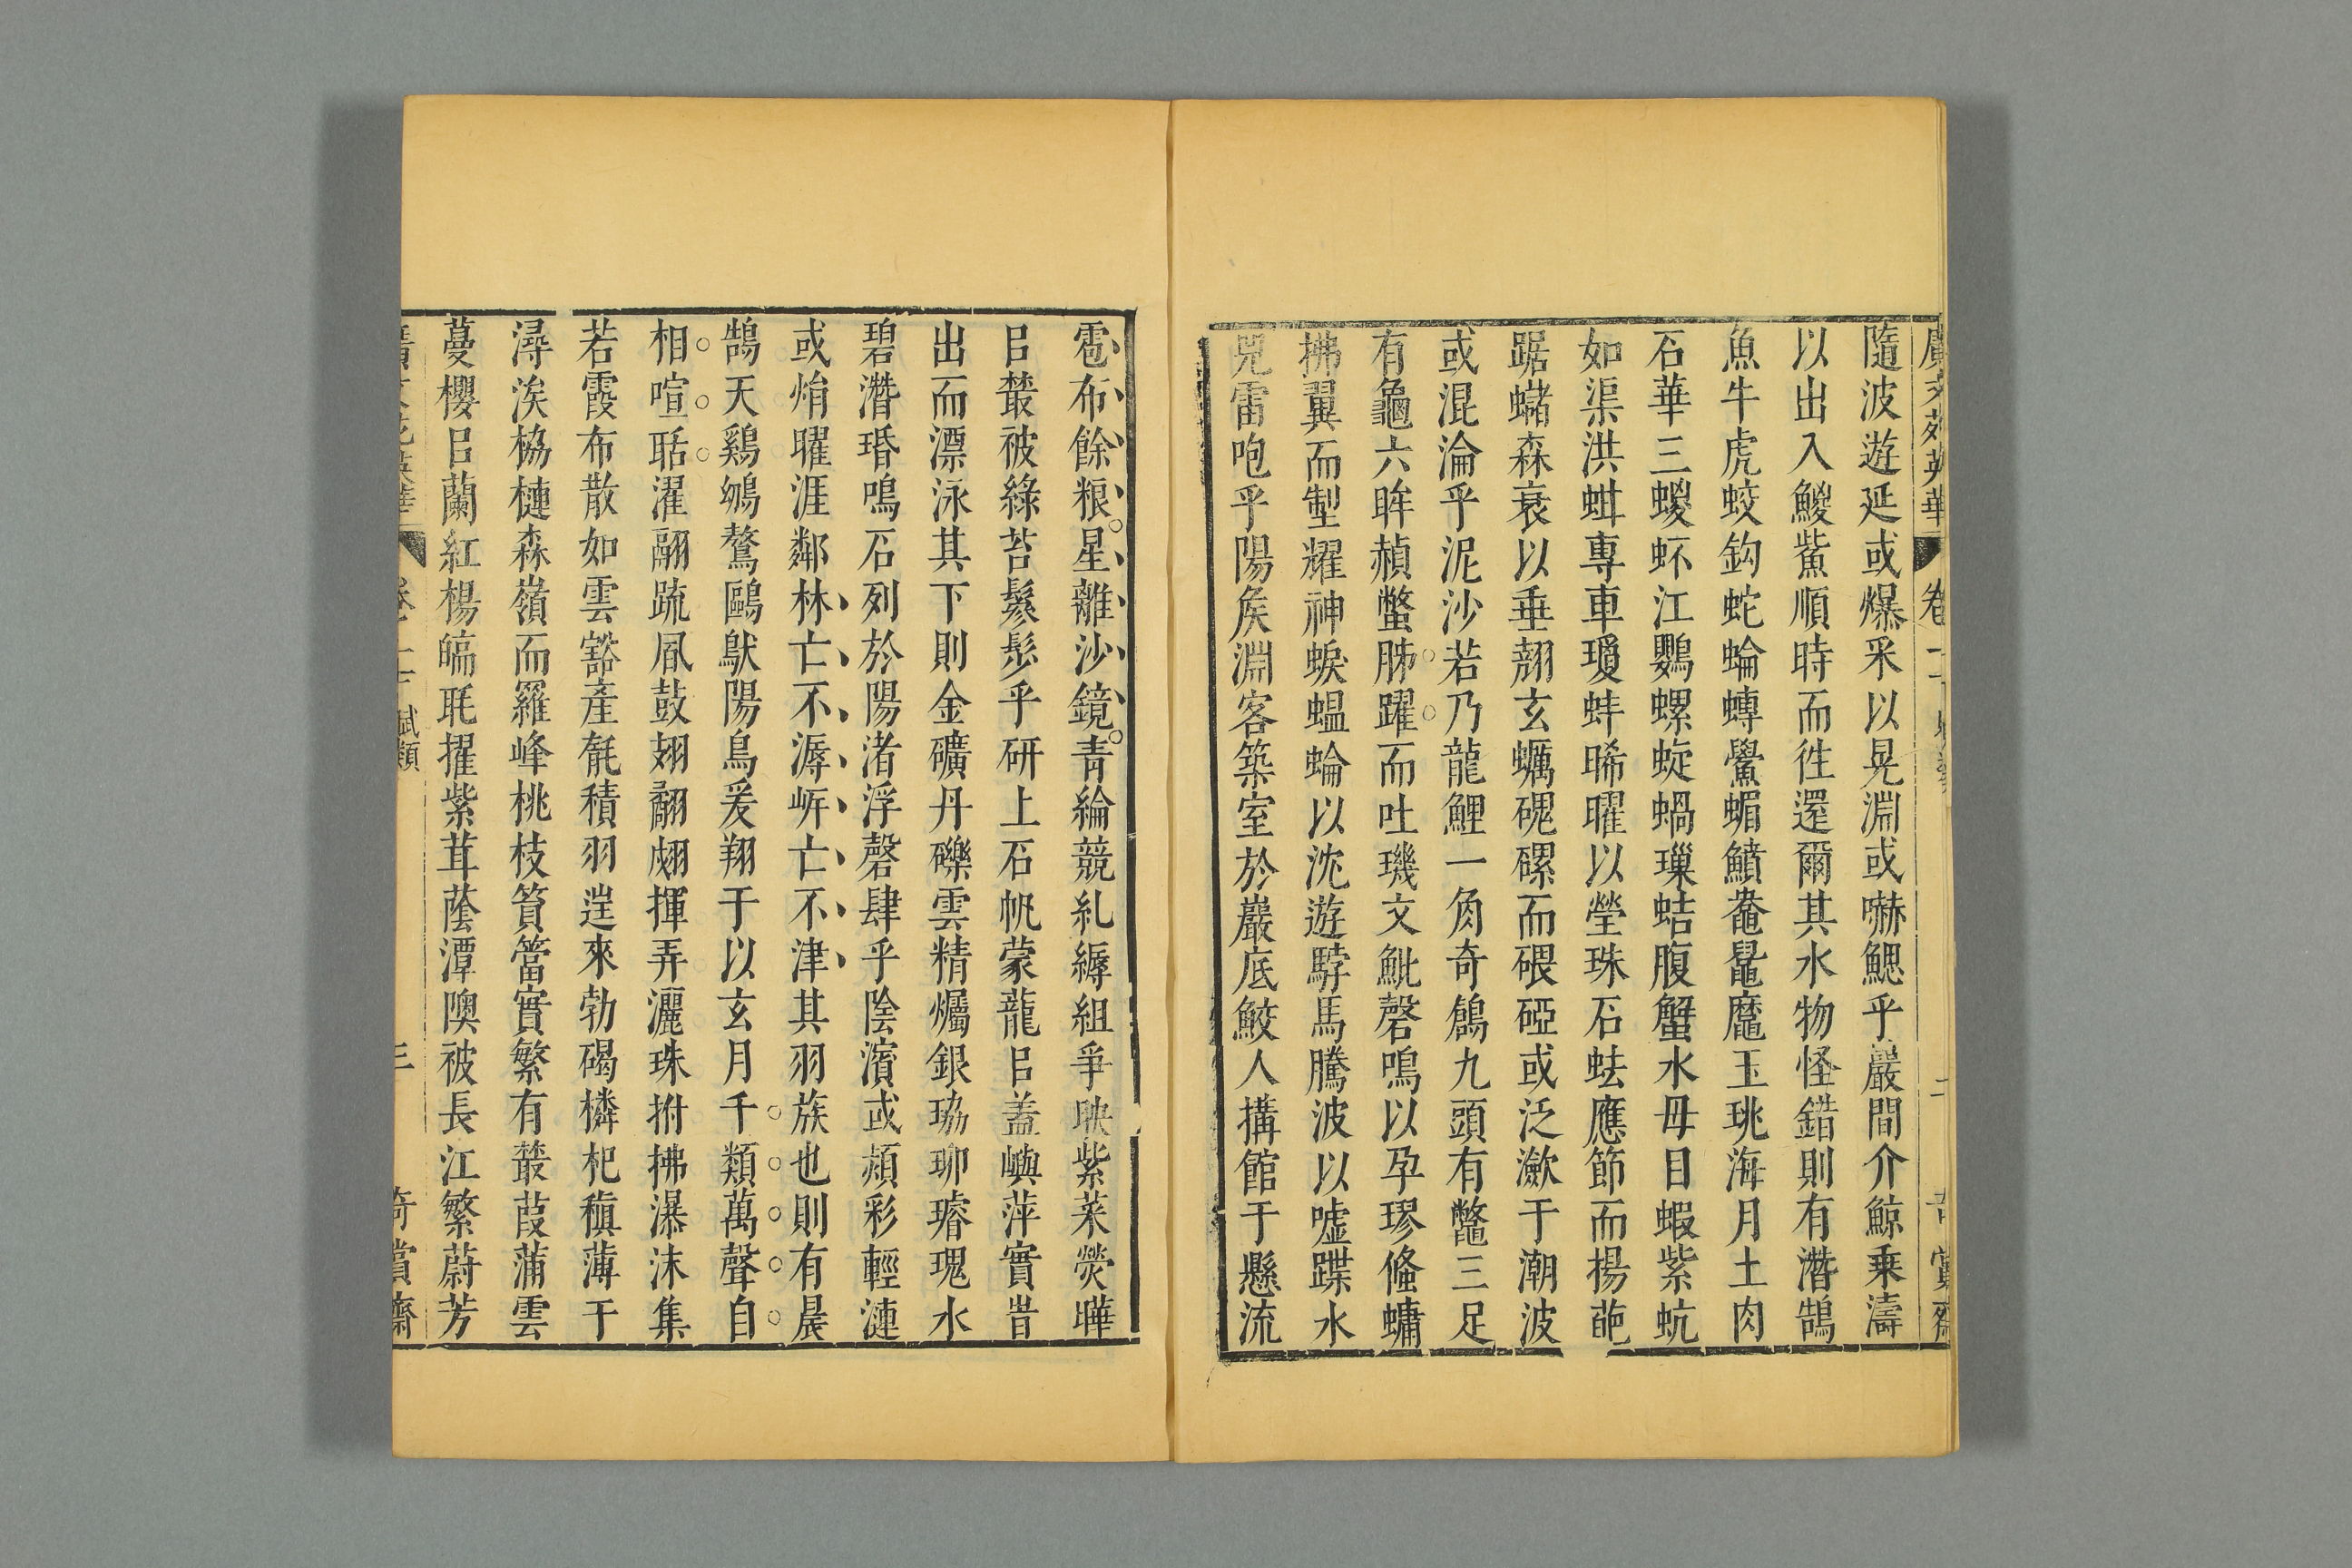 廣文苑英華 卷十一 二 奇賞齋
隨波遊延或爆采以晃淵或嚇鰓乎巖間介鯨乗濤
以出入鯼鮆順時而徃還爾其水物怪錯則有潛鵠
魚牛虎蛟鈎蛇蜦蟤鱟蝞鱝玉珧海月土肉
石華三蝬𧉈江鸚螺蜁蝸璅蛣腹蟹水毋目蝦紫蚢
如渠洪蚶專車瓊蚌晞曜以瑩珠石𧉧應節而揚葩
踞蝫森衰以垂翹玄蠣磈磥而碨或泛瀲于潮波
或混淪乎泥沙若乃龍鯉一角奇鶬九頭有鼈三足
有龜六眸赬蟞胏躍而吐璣文魮磬鳴以孕璆倐䗤
拂翼而掣耀神蜧蝹蜦以沈遊騂馬騰波以噓蹀水
兕雷咆乎陽侯淵客築室於巖底鮫人搆館于懸流
雹布餘粮星離沙鏡青綸競糺縟組爭映紫菜熒曄
㠯叢被綠苔鬖髿乎研上石帆蒙蘢㠯蓋嶼萍實旹
出而漂泳其下則金礦丹礫雲精爥銀珕珋璿瑰水
碧潛琘鳴石列於陽渚浮磬肆乎陰濱或熲彩輕漣
或焆曜涯鄰林亡不溽岸亡不津其羽族也則有晨
鵠天鷄鴢鶩鷗䳃陽鳥爰翔于以玄月千類萬聲自
相喧聒濯翮疏風鼓翅翻翽揮弄灑珠拊拂瀑沫集
若霞布散如雲豁產毻積羽逞來勃碣橉杞稹薄于
潯涘栛槤森嶺而羅峰桃枝篔簹實繁有叢葭蒲雲
蔓櫻㠯蘭紅揚皜毦擢紫茸蔭潭隩被長江繁蔚芳
廣文苑英華 卷十一 賦類 三 奇賞齋